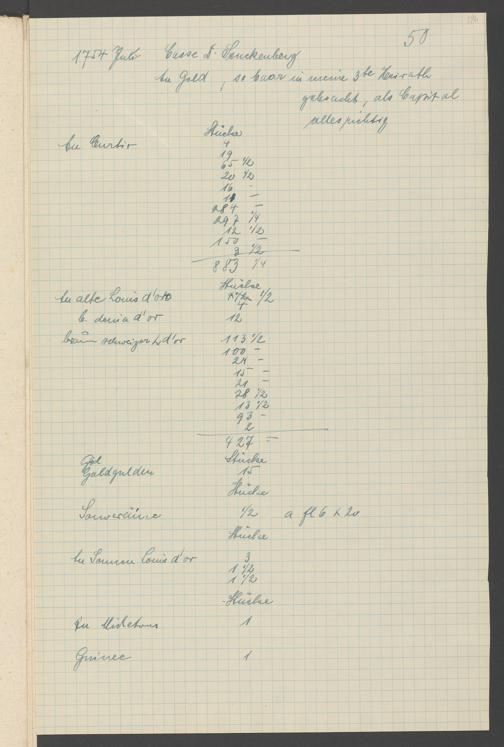 50
1754 Julo Casse D. Senckenberg
An Gold, so baar in meine 3te Heirath
gebracht, als Capital
alles richtig
Stücke
An
4
19
65 1/2
20 1/2
16 -
284 -
297 1/4
12 1/2
150 -
3 1/2
883 1/4
Stücke
An alte Louis d'or 1/2
4
d'or 12
braunschweiger d'or 113 1/2
100 -
24 -
15 -
21 -
28 1/2
13 1/2
93 -
2
427 -
Stücke
Goldgulden 15
Stücke
Souveraine 1/2 a fl 6 x 20
Stücke
An Sonnen Louis d'or 3
1 1/2
1 1/2
Stücke
An 1
Guinee 1